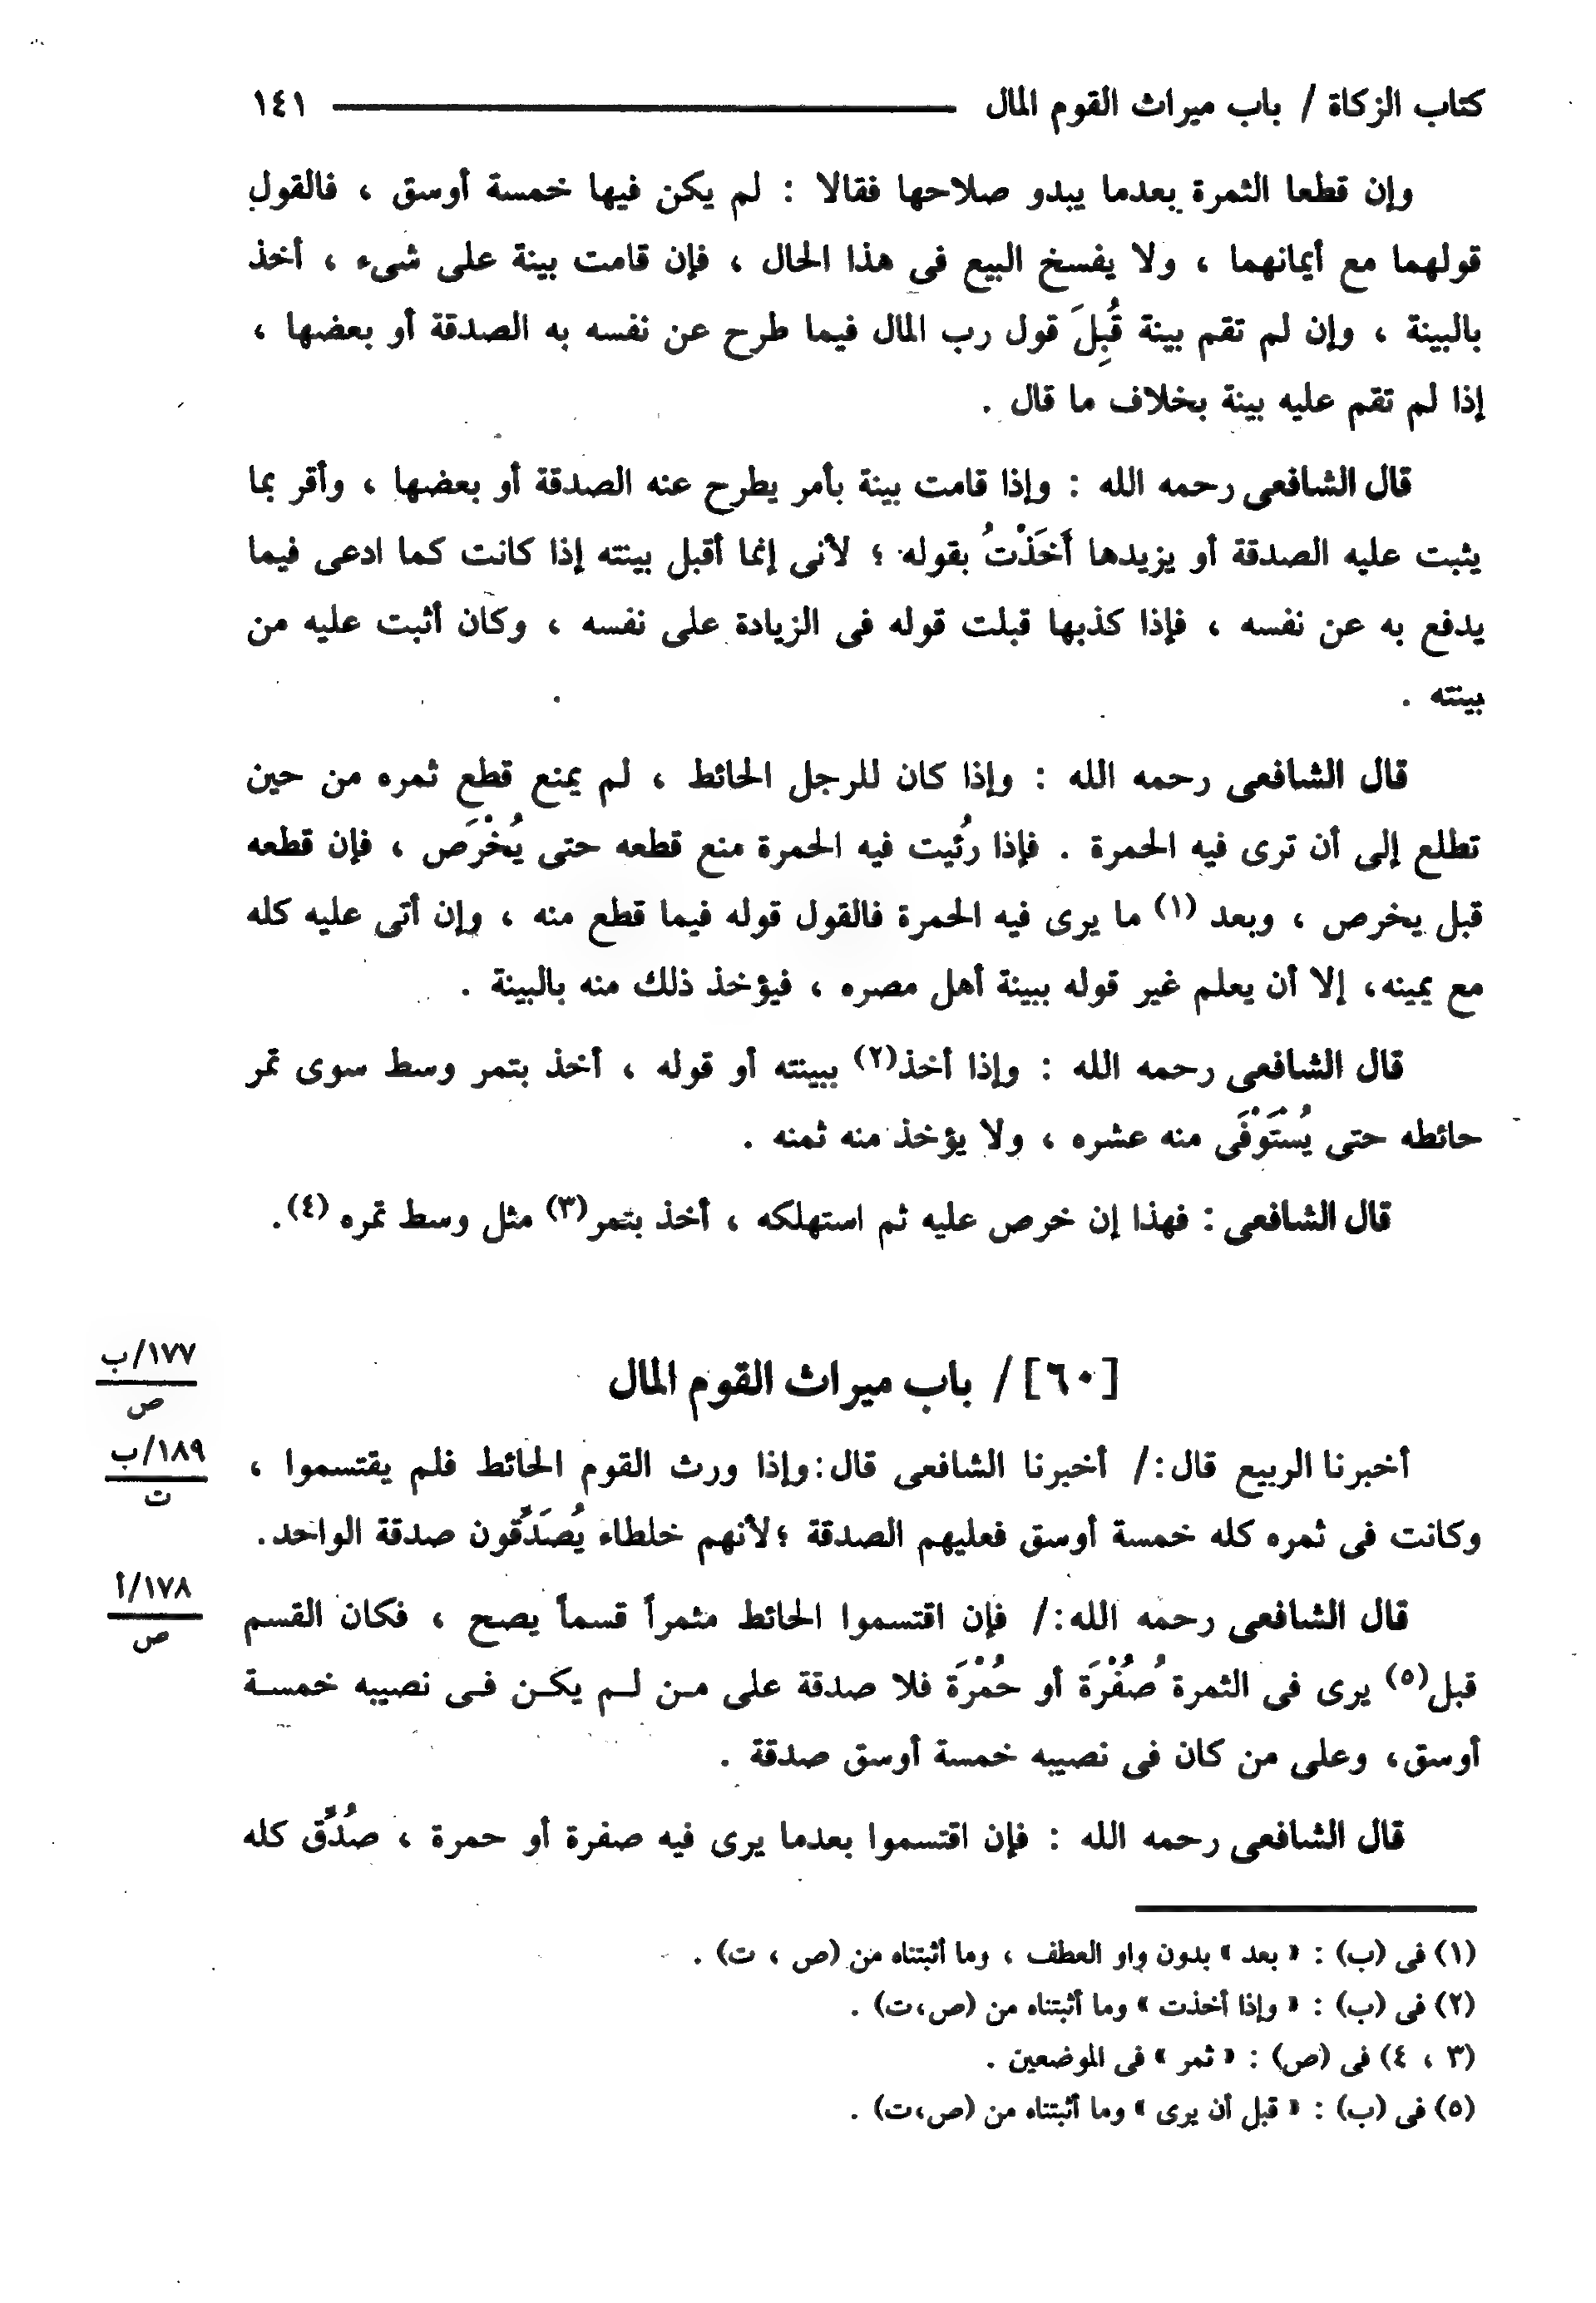 كتاب الزكاة / باب ميراث القوم المال ١٤١
وإن قطعا الثمرة بعدما يبدو صلاحها فقالا : لم يكن فيها خمسة أوسق ، فالقول
قولهما مع أيمانهما ، ولا يفسخ البيع فى هذا الحال ، فإن قامت بينة على شىء ، أخذ
بالبينة ، وإن لم تقم بينة قُبِلَ قول رب المال فيما طرح عن نفسه به الصدقة أو بعضها ،
إذا لم تقم عليه بينة بخلاف ما قال .
قال الشافعى رحمه الله : وإذا قامت بينة بأمر يطرح عنه الصدقة أو بعضها ، وأقر بما
يثبت عليه الصدقة أو يزيدها أَخَذْتُ بقوله ؛ لأنى إنما أقبل بينته إذا كانت كما ادعى فيما
يدفع به عن نفسه ، فإذا كذبها قبلت قوله فى الزيادة على نفسه ، وكان أثبت عليه من
بينته .
قال الشافعى رحمه الله : وإذا كان للرجل الحائط ، لم يمنع قطع ثمره من حين
تطلع إلى أن ترى فيه الحمرة . فإذا رُئيت فيه الحمرة منع قطعه حتى يُخْرَص ، فإن قطعه
قبل يخرص ، وبعد (١) ما يرى فيه الحمرة فالقول قوله فيما قطع منه ، وإن أتى عليه كله
مع يمينه، إلا أن يعلم غير قوله ببينة أهل مصره ، فيؤخذ ذلك منه بالبينة .
قال الشافعى رحمه الله : وإذا أخذ(٢) ببينته أو قوله ، أخذ بتمر وسط سوى تمر
حائطه حتى يُسْتَوْفَى منه عشره ، ولا يؤخذ منه ثمنه .
قال الشافعى : فهذا إن خرص عليه ثم استهلكه ، أخذ بتمر(٣) مثل وسط تمره (٤).
١٧٧/ب
ص
[٦٠] / باب ميراث القوم المال
١٨٩/ب
ت
أخبرنا الربيع قال:/ أخبرنا الشافعى قال:وإذا ورث القوم الحائط فلم يقتسموا ،
وكانت فى ثمره كله خمسة أوسق فعليهم الصدقة ؛لأنهم خلطاء يُصَدَّقون صدقة الواحد.
١٧٨/أ
ص
قال الشافعى رحمه الله:/ فإن اقتسموا الحائط مثمراً قسماً يصح ، فكان القسم
قبل(٥) يرى فى الثمرة صُفْرَة أو حُمْرَة فلا صدقة على مـن لـم يكـن فـى نصيبه خمسـة
أوسق، وعلى من كان فى نصيبه خمسة أوسق صدقة .
قال الشافعى رحمه الله : فإن اقتسموا بعدما يرى فيه صفرة أو حمرة ، صُدِّق كله
(١) فى (ب) : « بعد » بدون واو العطف ، وما أثبتناه من (ص ، ت) .
(٢) فى (ب) : « وإذا أخذت » وما أثبتناه من (ص،ت) .
(٣ ، ٤) فى (ص) : « ثمر » فى الموضعين .
(٥) فى (ب) : « قبل أن يرى » وما أثبتناه من (ص،ت) .